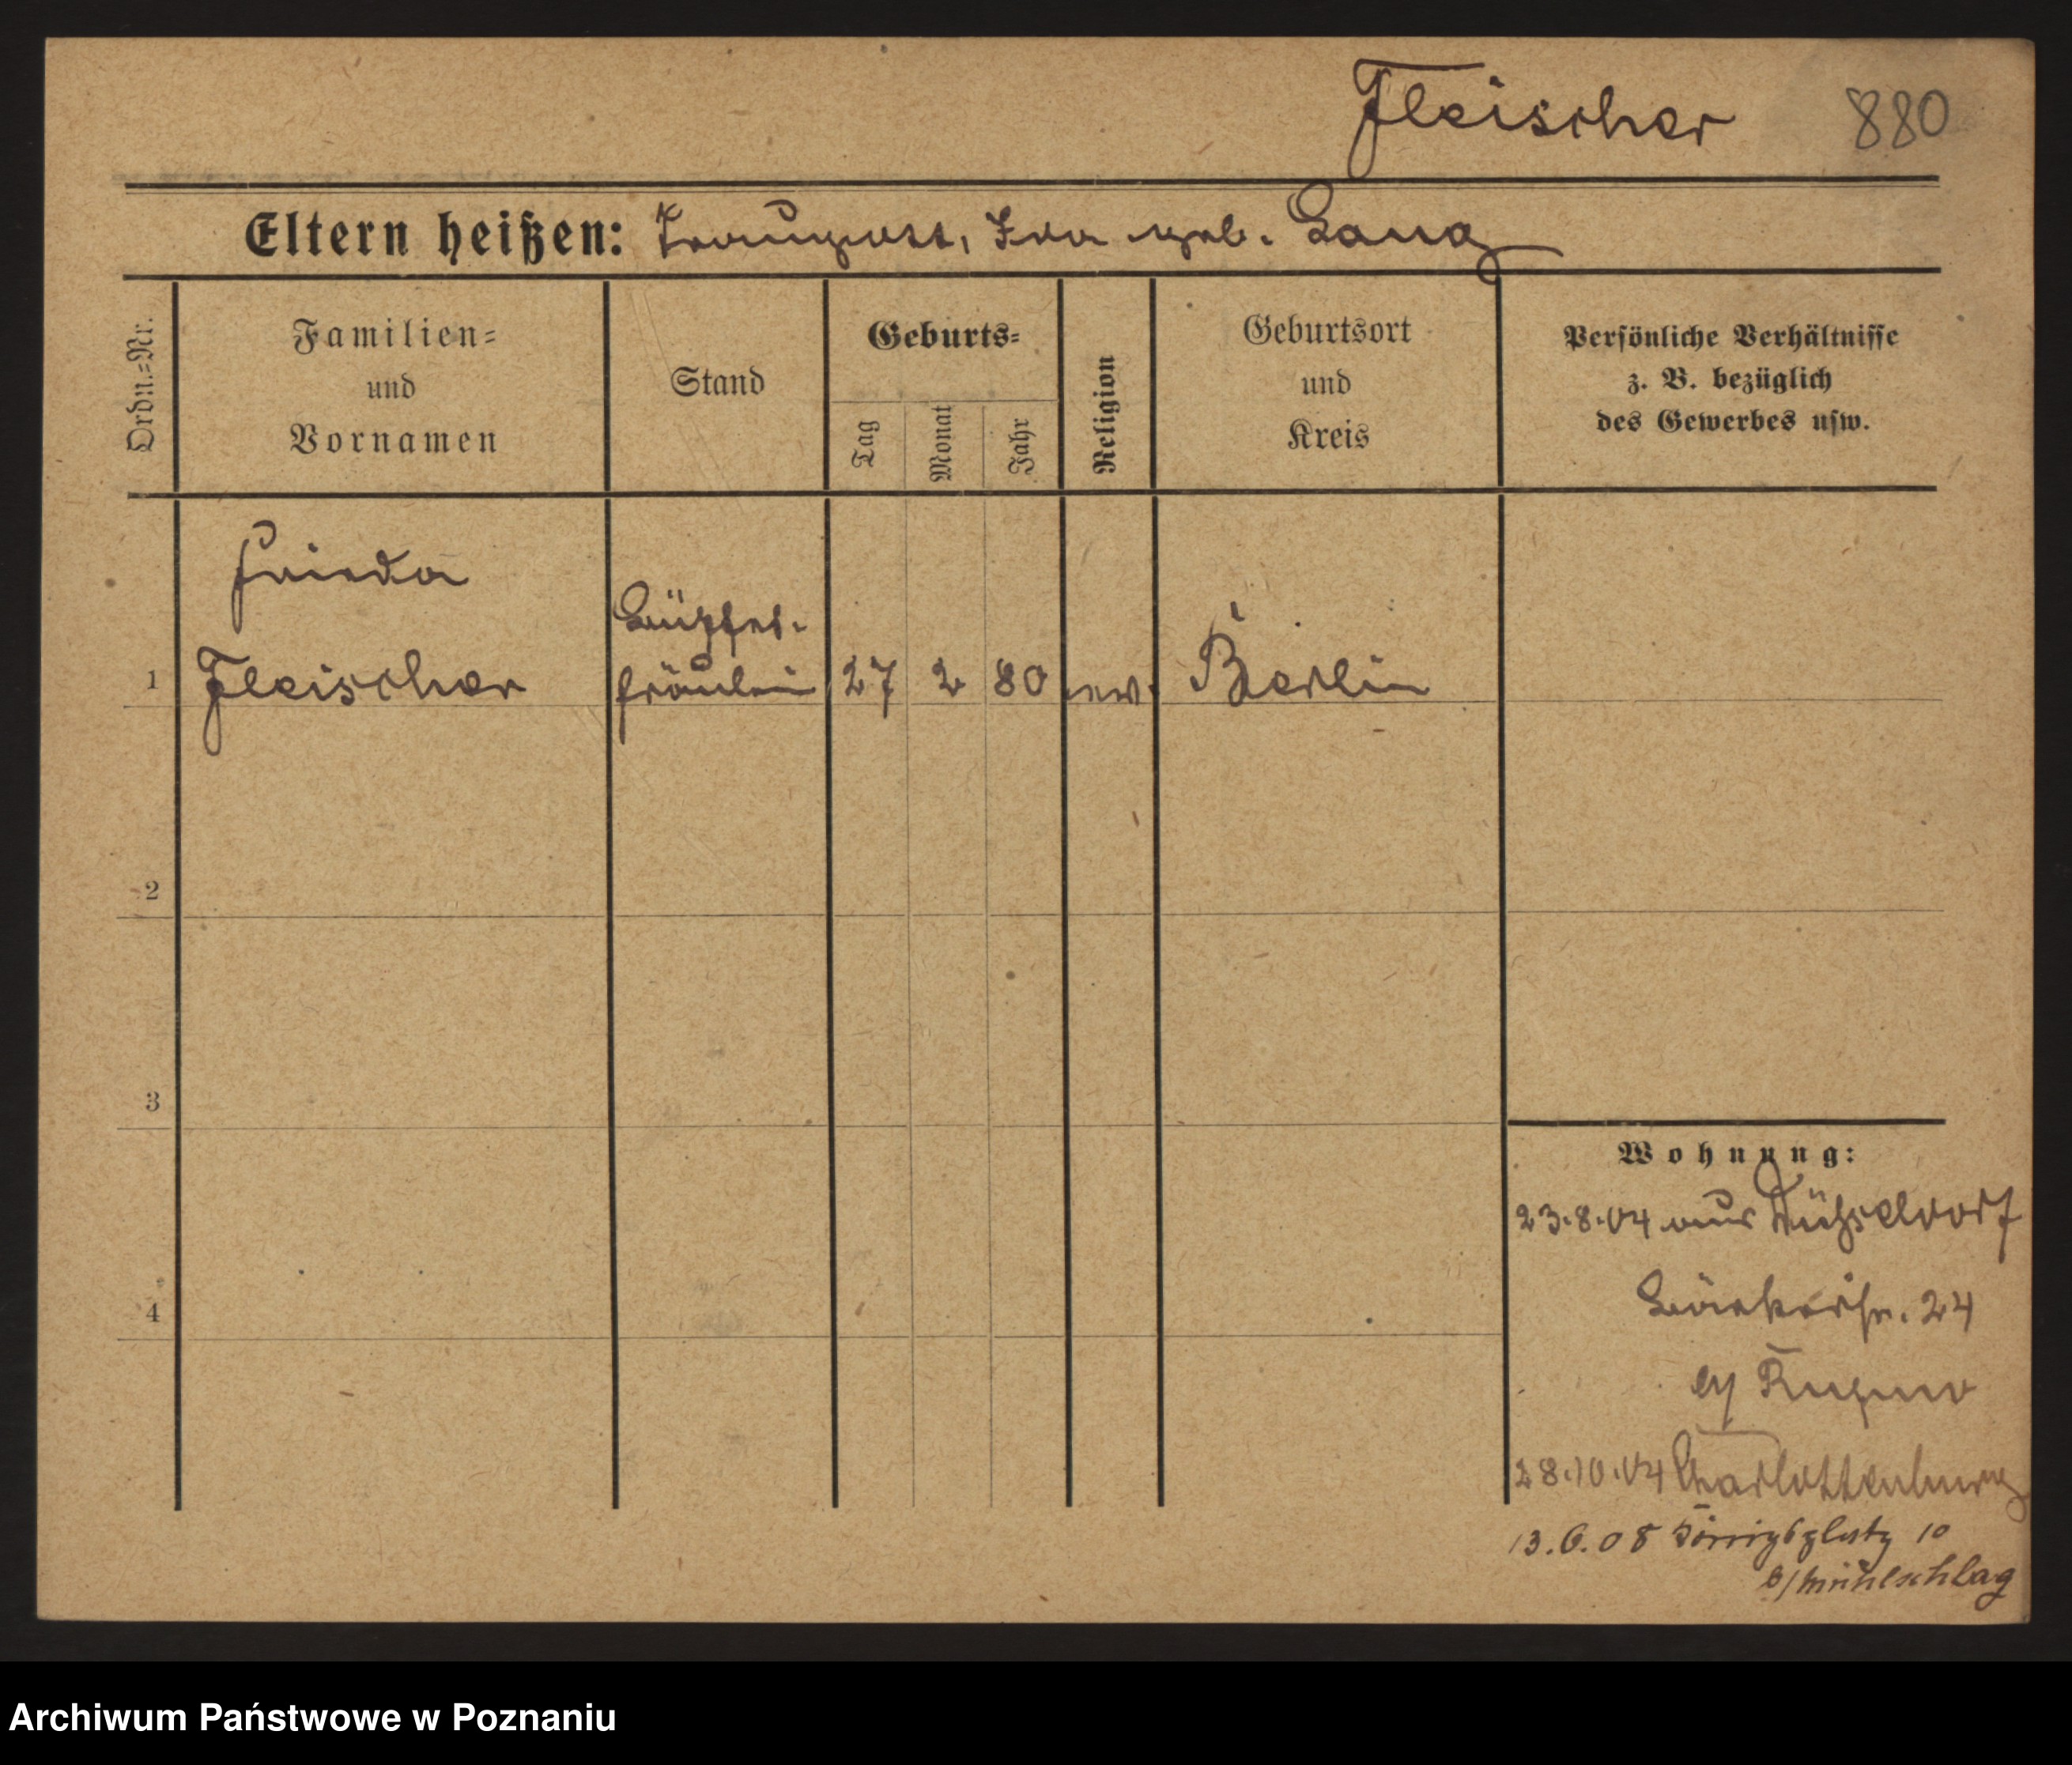 Fleischer 880
Eltern heißen: Traugott, Ida geb. Lang
Ordn.-Nr.
Familien-
und
Vornamen
Stand
Geburts-
Tag
Monat
Jahr
Religion
Geburtsort
und
Kreis
Persönliche Verhältnisse
z. B. bezüglich
des Gewerbes usw.
Frieda
Büffet-
1 Fleischer fräulein 27 2 80 ev. Berlin
2
3
4
Wohnung:
23.8.04 aus Düsseldorf
Bäckerstr. 24
28.10.04 Charlottenburg
13.6.08 Königsplatz 10
b/ Mühlschlag
Archiwum Państwowe w Poznaniu